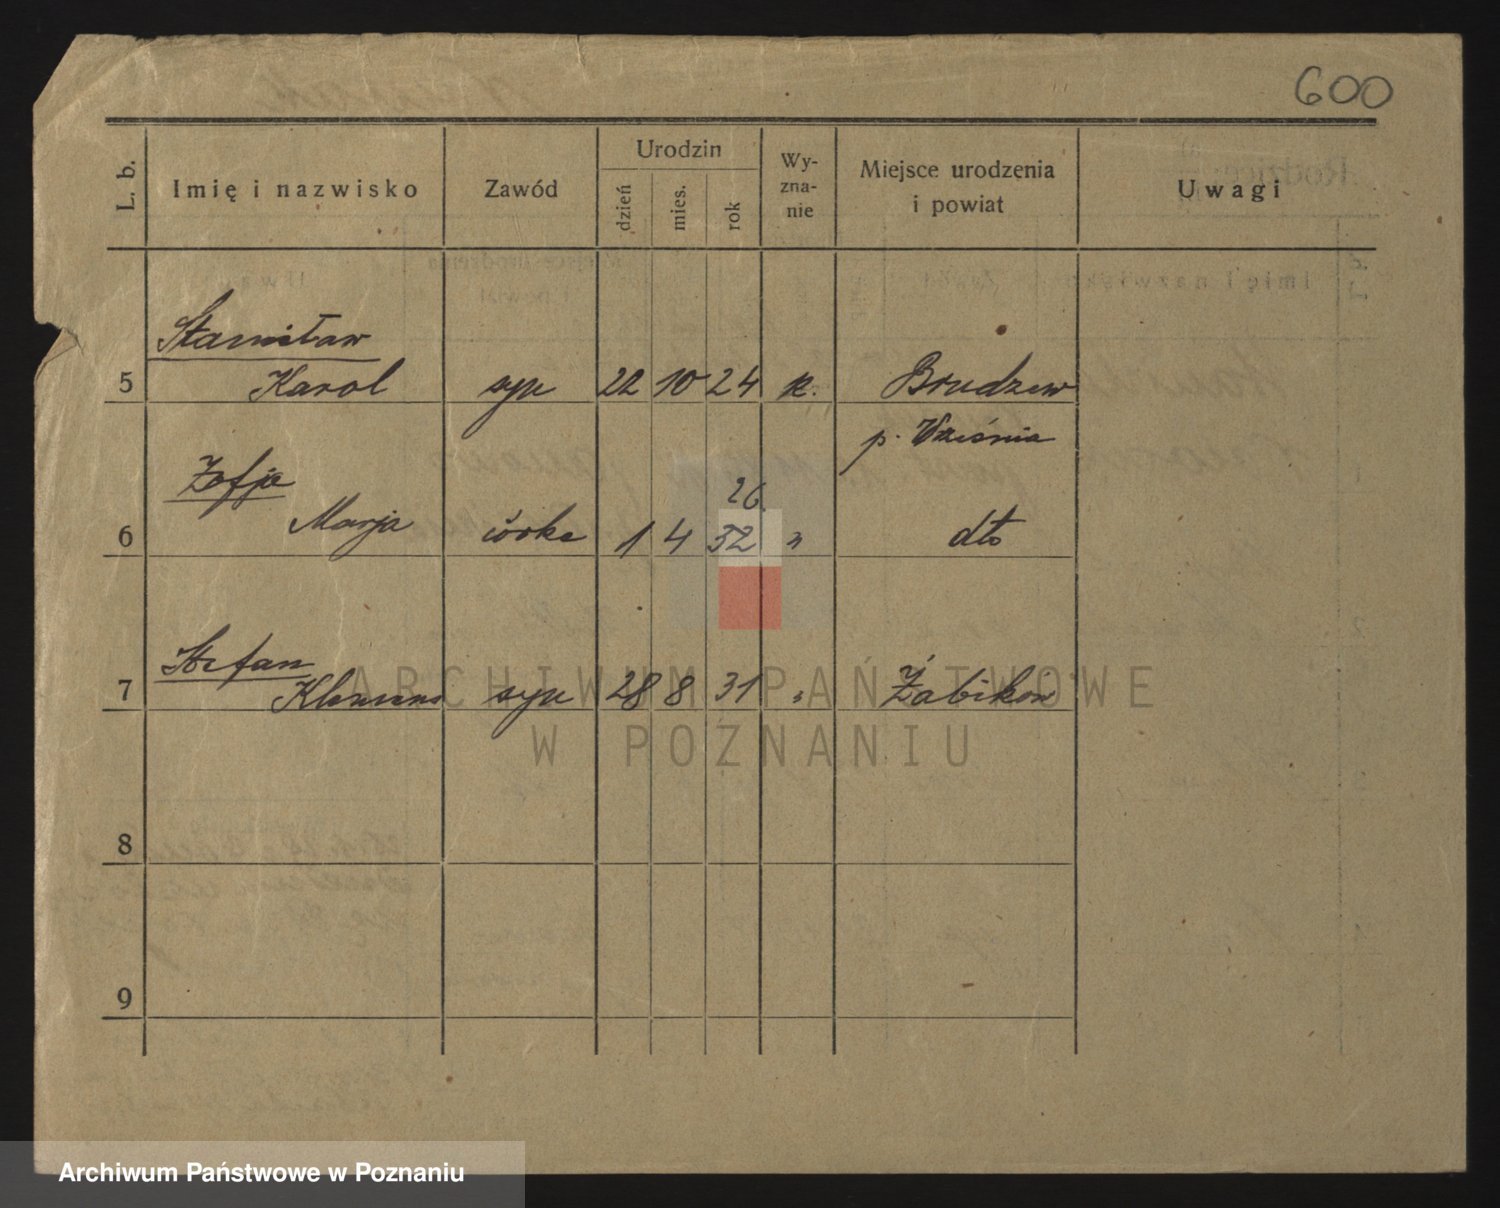 600
L. b.
Imię i nazwisko
Zawód
Urodzin
dzień
mies.
rok
Wy-
zna-
nie
Miejsce urodzenia
i powiat
Uwagi
Stanisław
5 Karol syn 22 10 24 k. Brudzew
p. Września
Zofja
26
6 Marja córka 1 4 32 " dto
Stefan
7 Klemens syn 28 8 31 " Żabikow
8
9
ARCHIWUM PAŃSTWOWE
W POZNANIU
Archiwum Państwowe w Poznaniu